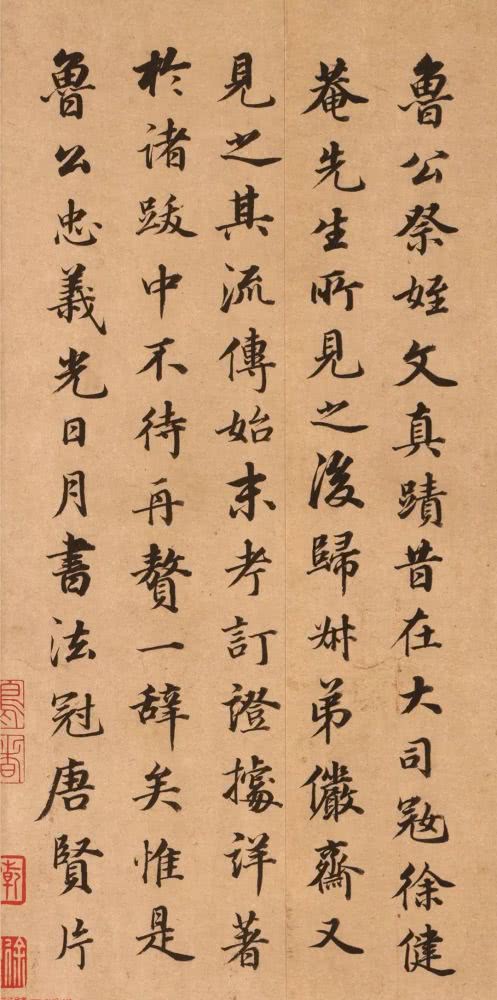 魯公祭姪文真蹟昔在大司冦徐健
菴先生所見之後歸叔弟儼齋又
見之其流傳始末考訂證據詳著
於諸跋中不待再贅一辭矣惟是
魯公忠義光日月書法冠唐賢片